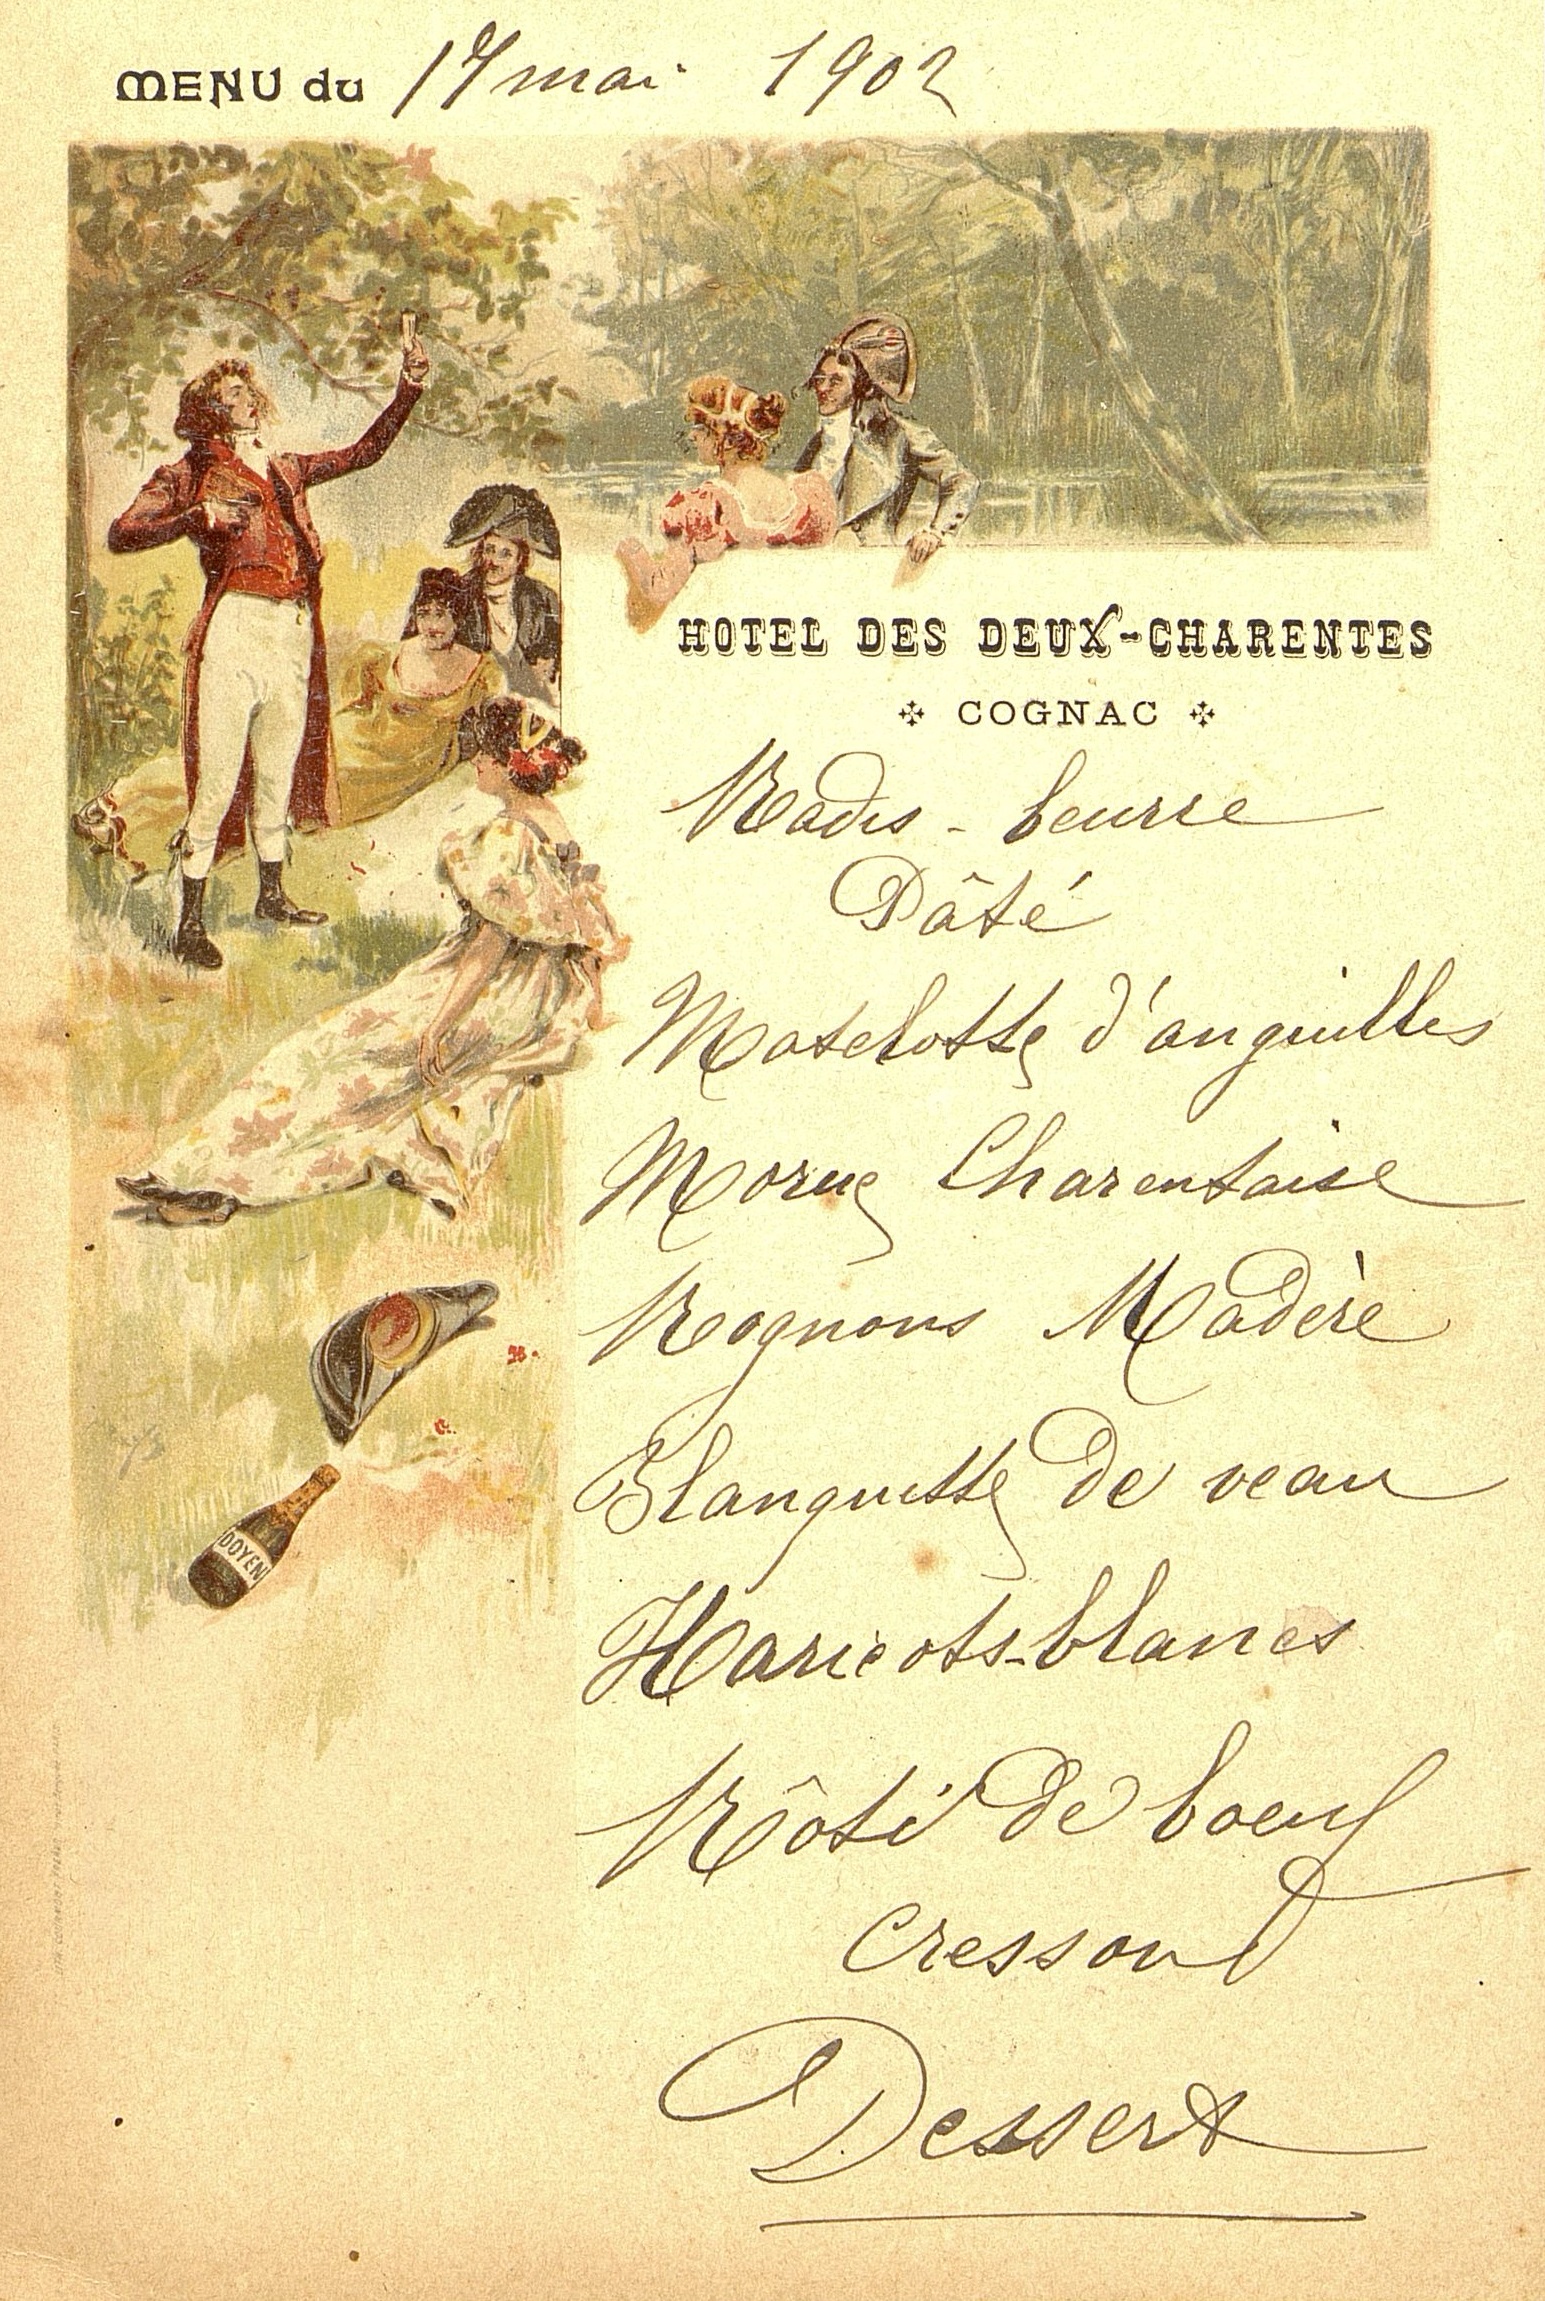 MENU du 17 mai 1902
HOTEL DES DEUX-CHARENTES
COGNAC
Radis - beurre
Pâté
Matelotte d'anguilles
Morue Charentaise
Rognons Madère
Blanquette de veau
Haricots-blancs
Rôti de boeuf
Cresson
Dessert
DOYEN